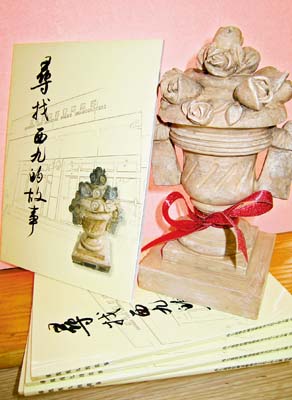 尋找西九的故事
尋找西九的